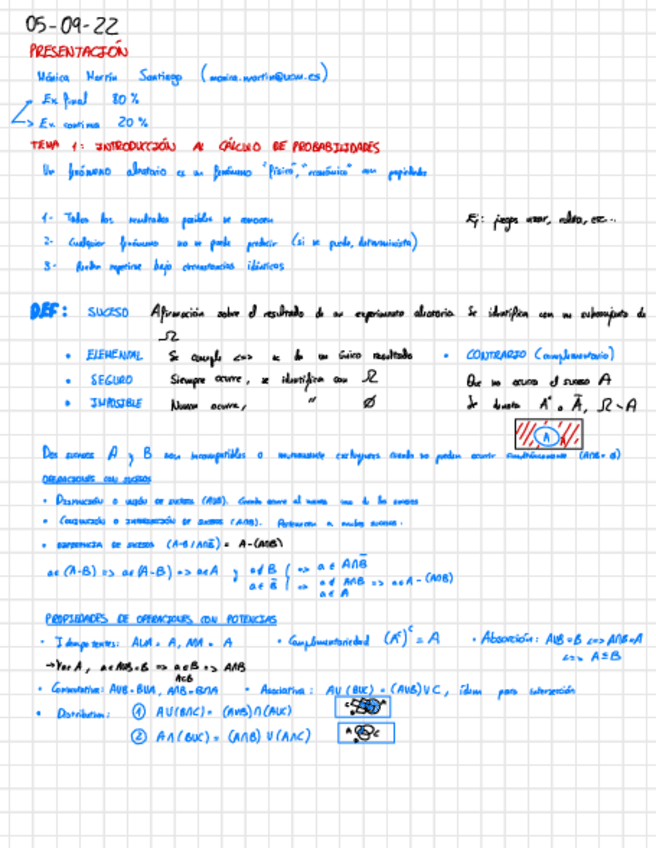 05-09-22
PRESENTACIÓN
Mónica Martín Santiago (monica.martin@ucm.es)
Ex final 80%
Ex. continua 20%
TEMA 1: INTRODUCCIÓN AL CÁLCULO DE PROBABILIDADES
Un fenómeno aleatorio es un fenómeno "físico", "económico" con propiedades
1- Todos los resultados posibles se conocen
Ej: juegos azar, ruleta, etc...
2- Cualquier fenómeno no se puede predecir (si se puede, determinista)
3- Pueden repetirse bajo circunstancias idénticas
DEF: SUCESO Afirmación sobre el resultado de un experimento aleatorio Se identifica con un subconjunto de
Ω
• ELEMENTAL Se cumple <=> de un único resultado • CONTRARIO (complementario)
• SEGURO Siempre ocurre, se identifica con Ω Que no ocurra el suceso A
• IMPOSIBLE Nunca ocurre, " Ø Se denota Aᶜ o Ā, Ω \ A
A
Dos sucesos A y B son incompatibles o mutuamente excluyentes cuando no pueden ocurrir simultáneamente (A∩B = Ø)
OPERACIONES CON SUCESOS
• DISYUNCIÓN O UNIÓN DE SUCESOS (A∪B). Cuando ocurre al menos uno de los sucesos
• CONJUNCIÓN O INTERSECCIÓN DE SUCESOS (A∩B). Pertenecen a ambos sucesos.
• DIFERENCIA DE SUCESOS (A-B / A∩B̄) = A-(A∩B)
a∈(A-B) => a∈(A-B) => a∈A y a∉B => a∈A∩B̄
a∈B̄ => a∉A∩B => a∈A-(A∩B)
a∈A
PROPIEDADES DE OPERACIONES CON POTENCIAS
• Idempotentes: A∪A = A, A∩A = A • Complementariedad (Aᶜ)ᶜ = A • Absorción: A∪B=B <=> A∩B=A
<=> A⊆B
→ ∀a∈A, a∈A∪B=B => a∈B => A∩B
A⊂B
• Conmutativa: A∪B=B∪A, A∩B=B∩A • Asociativa: A∪(B∪C) = (A∪B)∪C, ídem para intersección
• Distributiva: ① A∪(B∩C) = (A∪B)∩(A∪C)
② A∩(B∪C) = (A∩B)∪(A∩C)